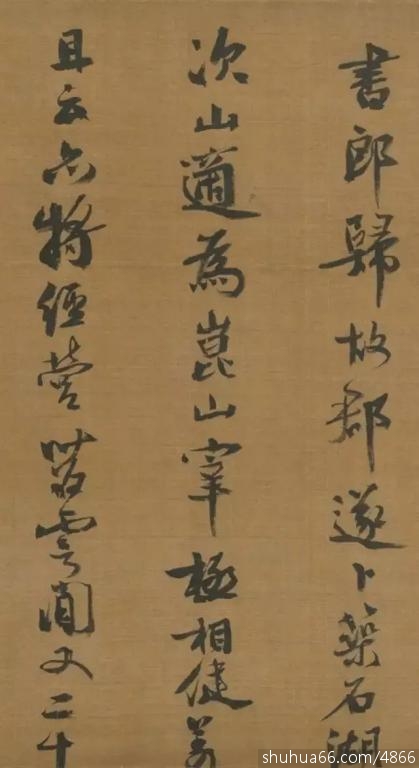 書郎歸故郡遂卜築石湖
次山適為崑山宰極相健羨
且云亦將經營苕霅間又二十
shuhua66.com/4866